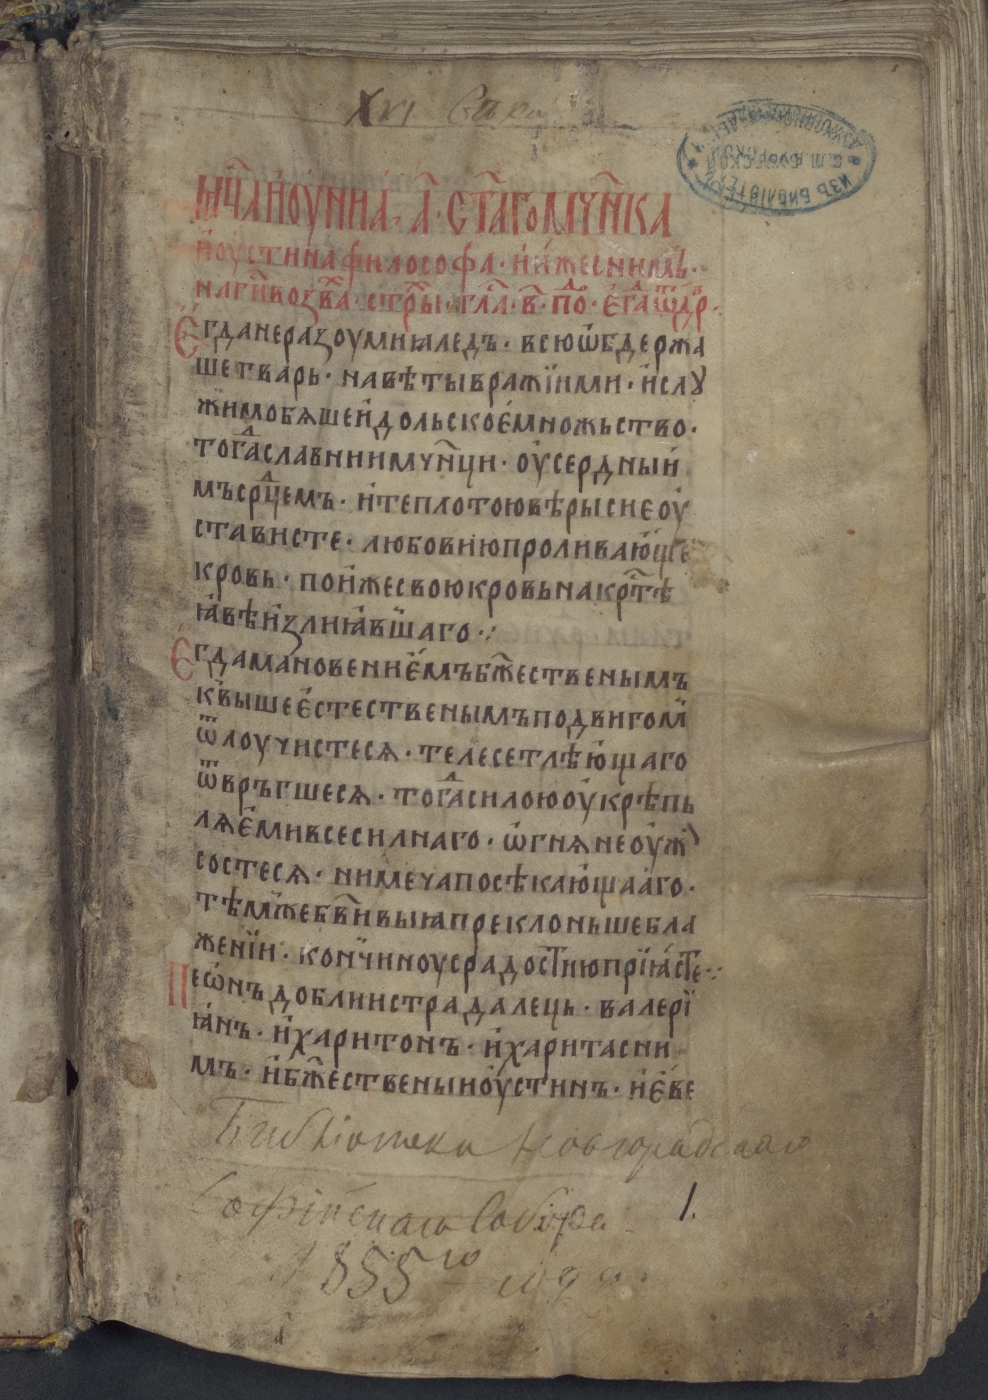 XVI века
ИЗЪ БИБЛІОТЕКИ
м҇ца і҆оунна. а҃. ст҃аго мч҃нка
і҆оустина философа. и҆ и҆же с нимъ.
на гі҃ во́зва. стр҃ы. гла҃. в҃. по҃. е҆гда̀ ѿ др.
Е҆гда неразоумиꙗ ледъ. всю ѡ҆бдержа
ше тварь. навѣты вражїими. и҆ слꙋ
жимо бѧше и҆дольское мно́жьство.
тогда̀ славнии мч҃нци. оу҆сердныи҆
мъ срд҃цемъ. и҆ теплотою вѣры сие оу҆
стависте. любовию проливаю҆ще
кровь. по и҆же свою кровь на крт҃ѣ
ꙗ҆вѣ и҆злиꙗ҆вшаго ⁘
Е҆гда мановение҆мъ бж҃ественымъ
к вышее҆стественымъ подвигом
ѿлоучистесѧ. телесе тлѣю҆щаго
ѿвръгшесѧ. тогда̀ силою оу҆крѣпь
лѧе҆ми всесилнаго. ѡ҆гнѧ не оу҆жа
состесѧ. ни меча посѣкаю҆щааго.
тѣмже бв҃и выꙗ преклоньше бла
жен҇їи. кончиноу с радостию прїꙗ҆сте ⁘
Пеѡ҆нъ доблии страдалець. валерї
ꙗ҆нъ. и҆ харитонъ. и҆ харита с ни
мъ. и҆ бж҃ественыи оу҆стинъ. и҆ е҆ве
Библіотеки Новгородскаго
Софійскаго Собора
1.
1855го года